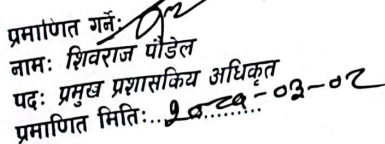 प्रमाणित गर्ने:
नाम: शिवराज पौडेल
पद: प्रमुख प्रशासकिय अधिकृत
प्रमाणित मिति:..........-०३-०२